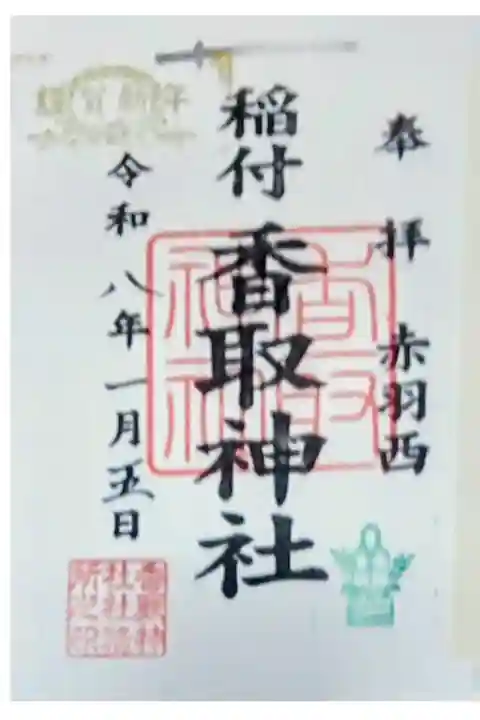 奉拝 赤羽西
稲付
香取神社
令和八年一月五日
香取神社